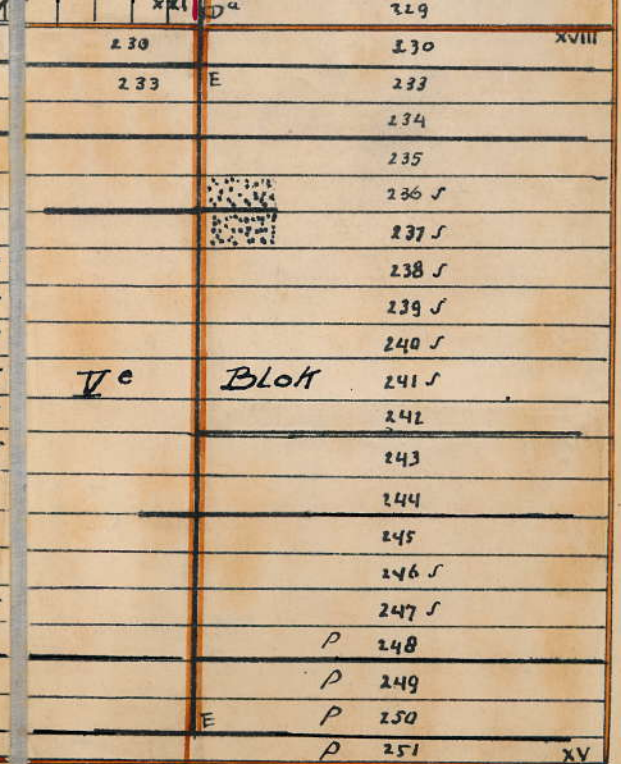 XXI Da 329
230 230 XVIII
233 E 233
234
235
236 S
237 S
238 S
239 S
240 S
Ve BLOK 241 S
242
243
244
245
246 S
247 S
P 248
P 249
E P 250
P 251 XV